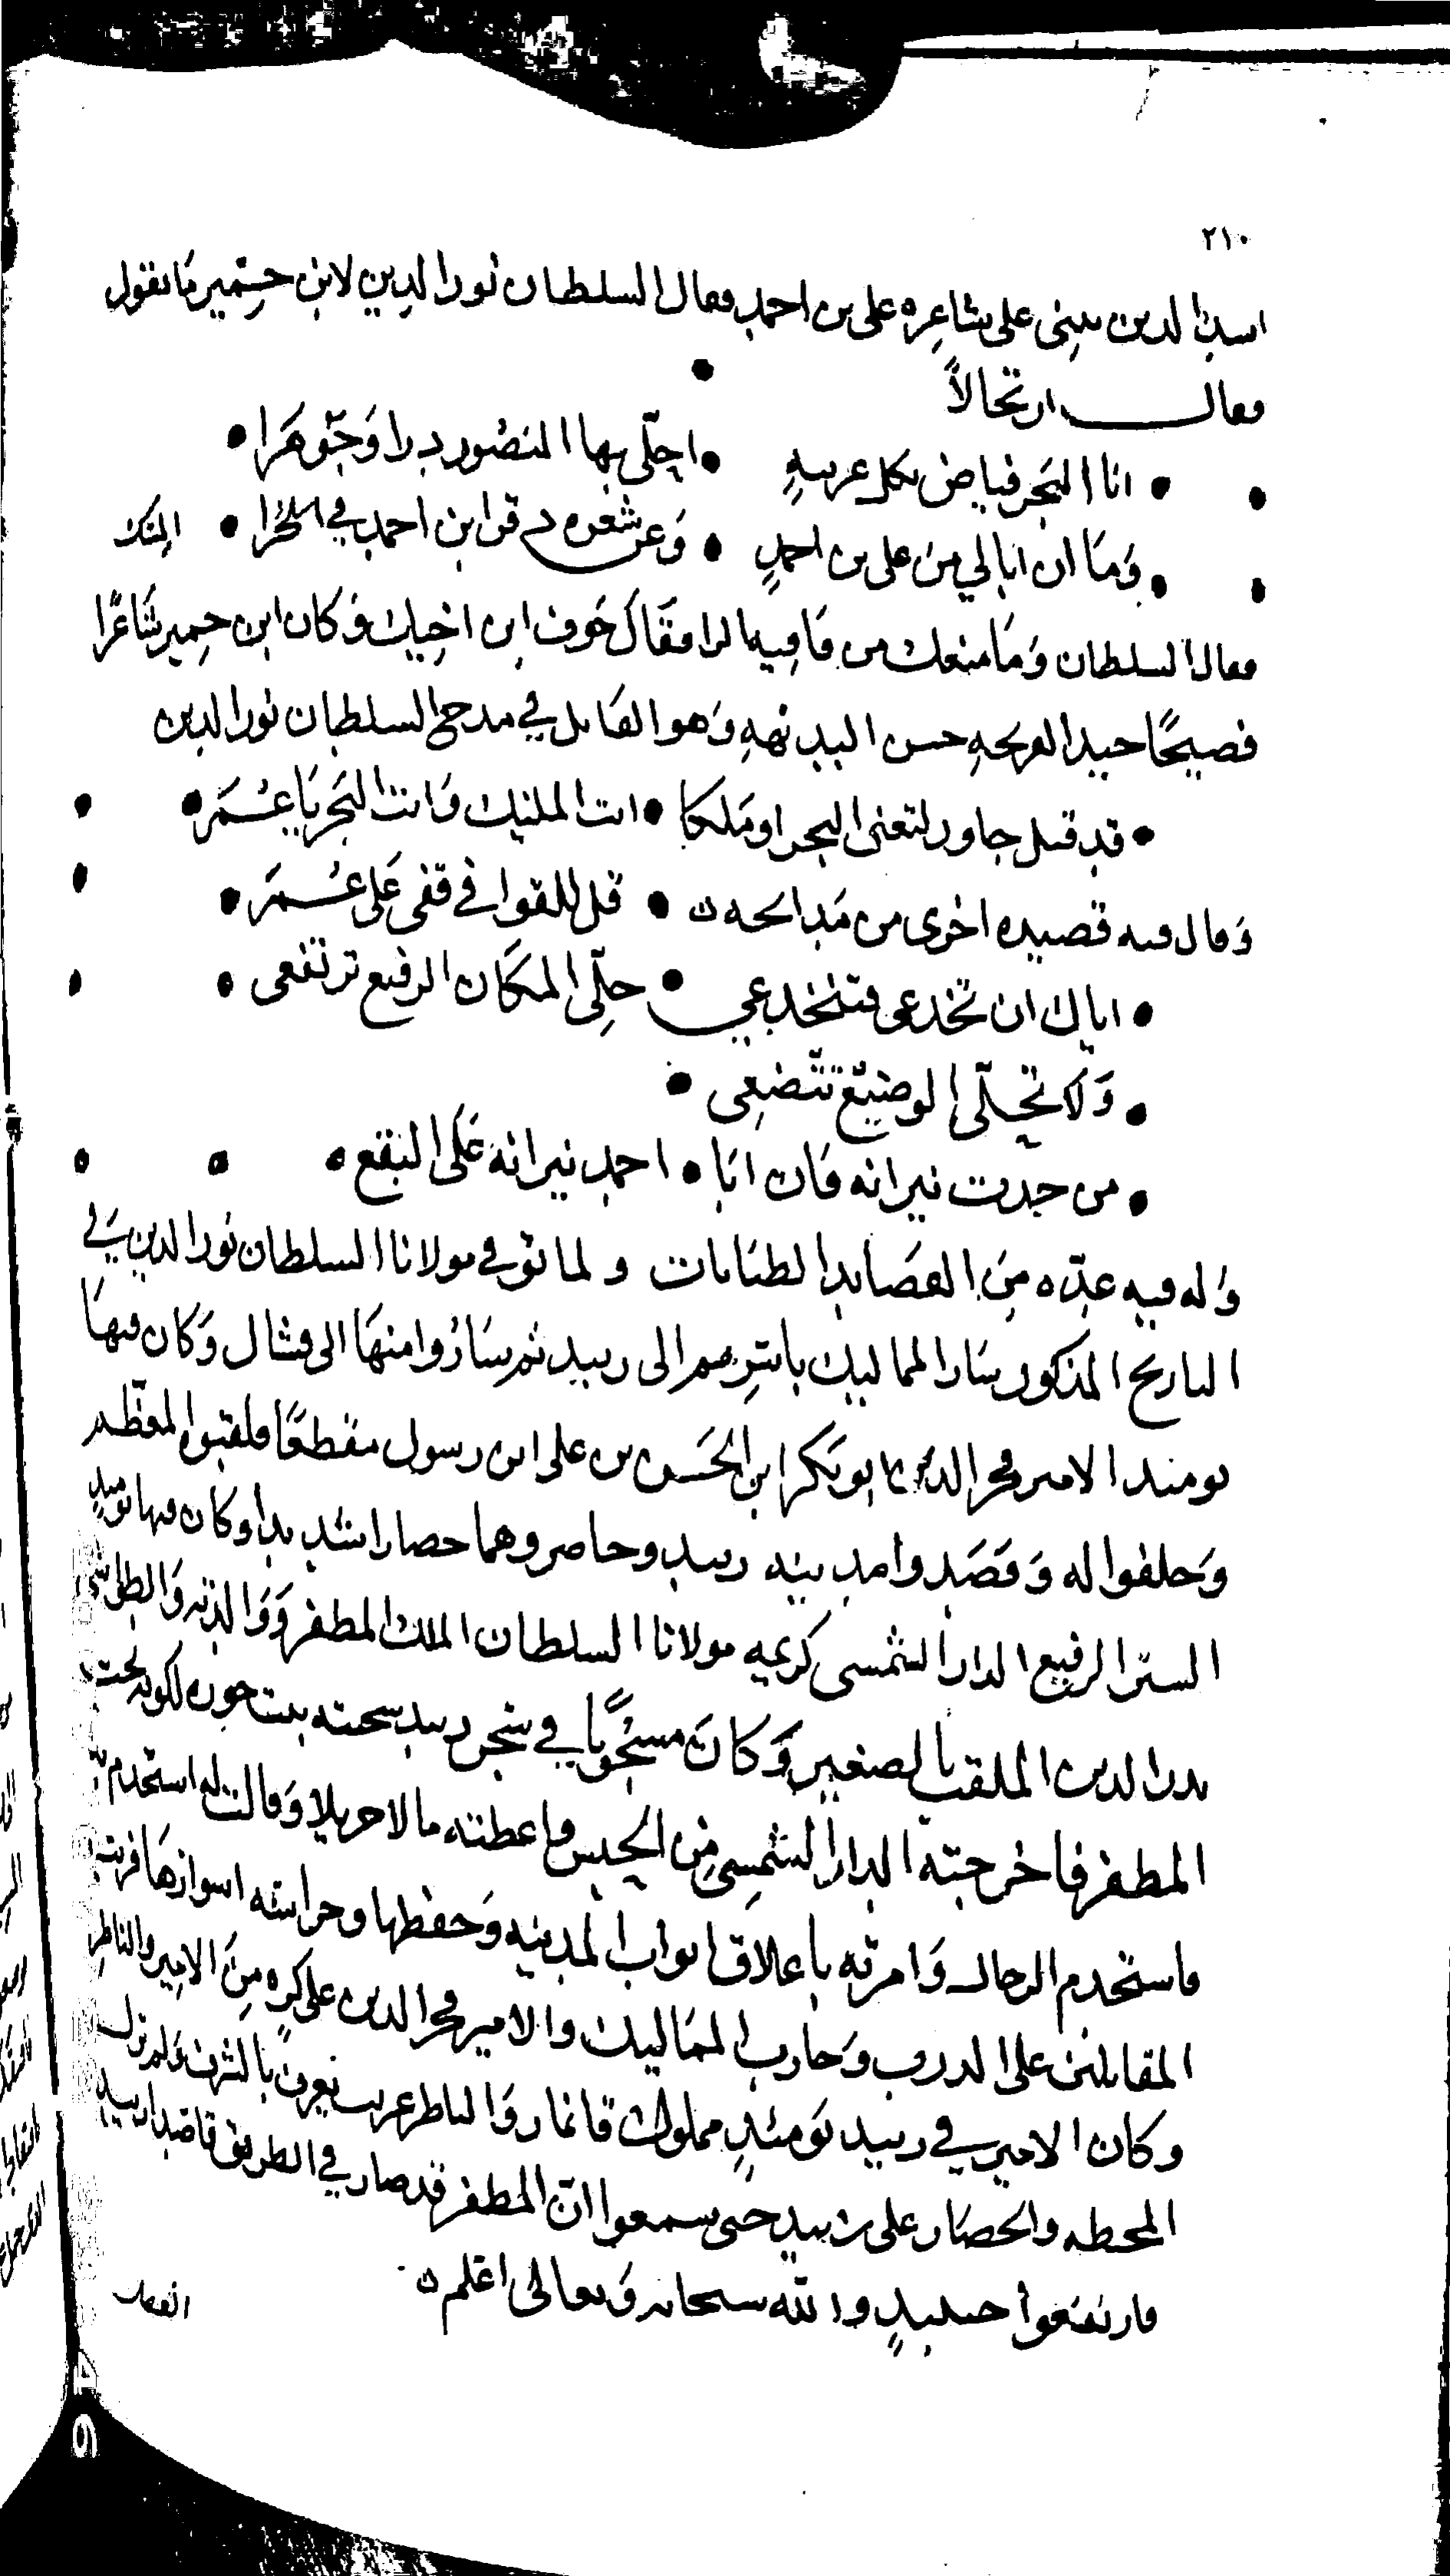 ٢١٠
اسد الدين يثنى على شاعره على بن احمد فقال السلطان نور الدين لابن حِمْير مَا تقول
فقال ارتجالاً
انا البَحر فياض بكل عريبهٍ • احلّى بها المنصُور درا وَجَوهَرا
وَمَا ان ابالي من على بن احمدٍ • وَعن شعره قد قرا ابن احمد في
فقال السلطان وَمَا منعك من قافيه الرا فقَال خَوف ابن اخيك وَكان ابن حِمير شَاعرًا
فصيحًا جيد القريحهِ حسن البديههِ وَهو القايل في مدح السلطان نور الدين
• قد قيل جاور لتغنى البحر او مَلكا • انت المليك وَانت البَحر يَا عُمَر •
وَقال فيه قصيده اخرى من مَدائحه • قل للقوافي قفى عَلى عُمَر •
• اياك ان تخدعى فتنخدعي • حلّى المكَان الرفيع ترتفعى •
• وَلَا تحلّى الوضيع تتّضعِى •
• من جدت نيرانه فَان ابَا • احمد نيرانه عَلَى اليَفع •
وَله فيه عدّه مِن القصَايد الطنانات ولما توفى مولانا السلطان نور الدين في
التاريخ المذكور سَار المماليك باسرهم الى زبيد ثم سَارُوا منهَا الى فشال وَكان فيهَا
يومئذ الامير فخر الدين ابو بَكر ابن الحَسَن بن على ابن رسول مقطعًا فلقبوه المعظّم
وَحلفوا له وَقصَدوا مدينه زبيد وحاصروهما حصارا شديدا وكان فيها يوميذٍ
الستر الرفيع الدار الشمسى كريمه مولانا السلطان الملك المظفر وَوَالدته وَالطواشى
بدر الدين الملقب بالصغير وَكانَ مسجُونًا في سجن زبيد سجنته بنت جوزه لكونه تحت
المظفر فاخرجته الدار الشمسِى مِن الحبس واعطته مالا جزيلا وَقالت له استخدم
فاستخدم الرجال وَامرته باغلاق ابواب المدينه وَحفظها وحراسه اسوارهَا فرتب
المقاتلين على الدروب وَحارب المَماليك والامير فخر الدين على كره مِنَ الامير والناظر
وكان الامير في زبيد يَومئذٍ مملوك قانماز وَالناظر عربى يعرف بالشرف وَلم تزل
المحطه والحصَار على زبيد حتى سمعوا انّ المظفر قد صار في الطريق قاصدا زبيد
فارتفعوا حينيذٍ والله سبحانه وَتعالى اعلم
الفصل